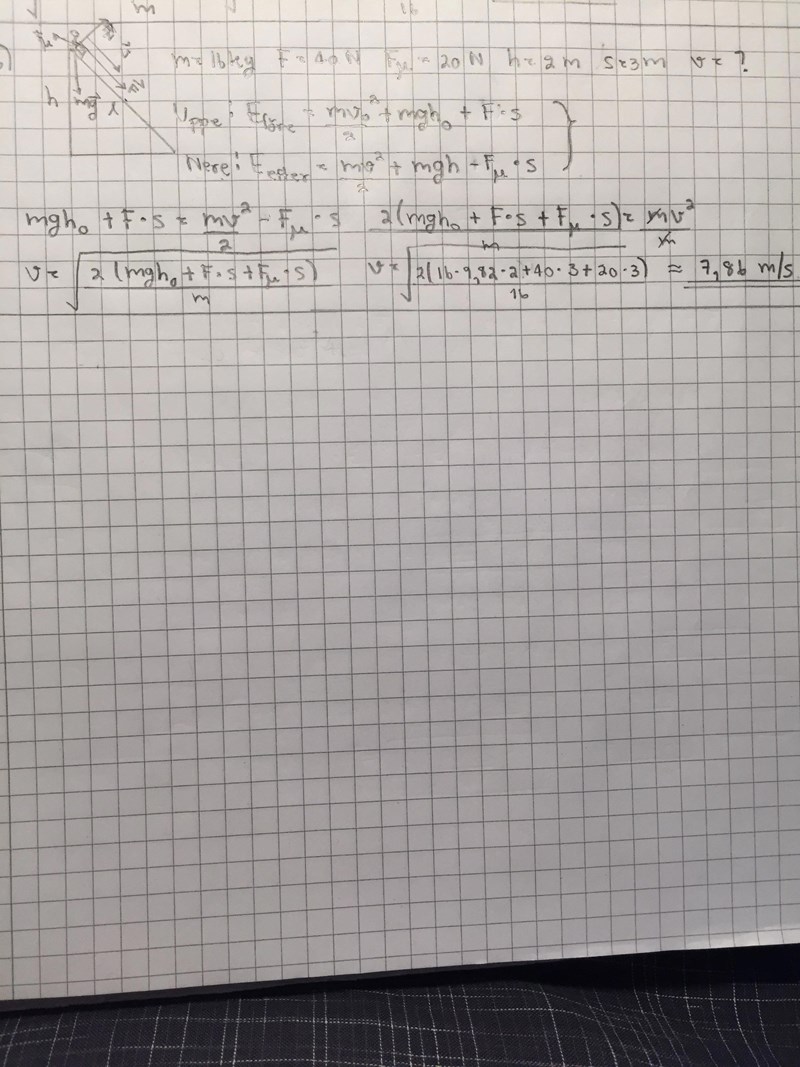 m
16
m = 16 kg F = 40 N Fμ = 20 N h = 2 m s = 3 m v = ?
Uppe: Eföre = mv₀²/2 + mgh₀ + F·s
Nere: Eefter = mv²/2 + mgh - Fμ·s
h
mgh₀ + F·s = mv²/2 - Fμ·s 2(mgh₀ + F·s + Fμ·s)/m = mv²/m
v = √(2(mgh₀ + F·s + Fμ·s)/m) v = √(2(16·9,82·2+40·3+20·3)/16) ≈ 7,86 m/s